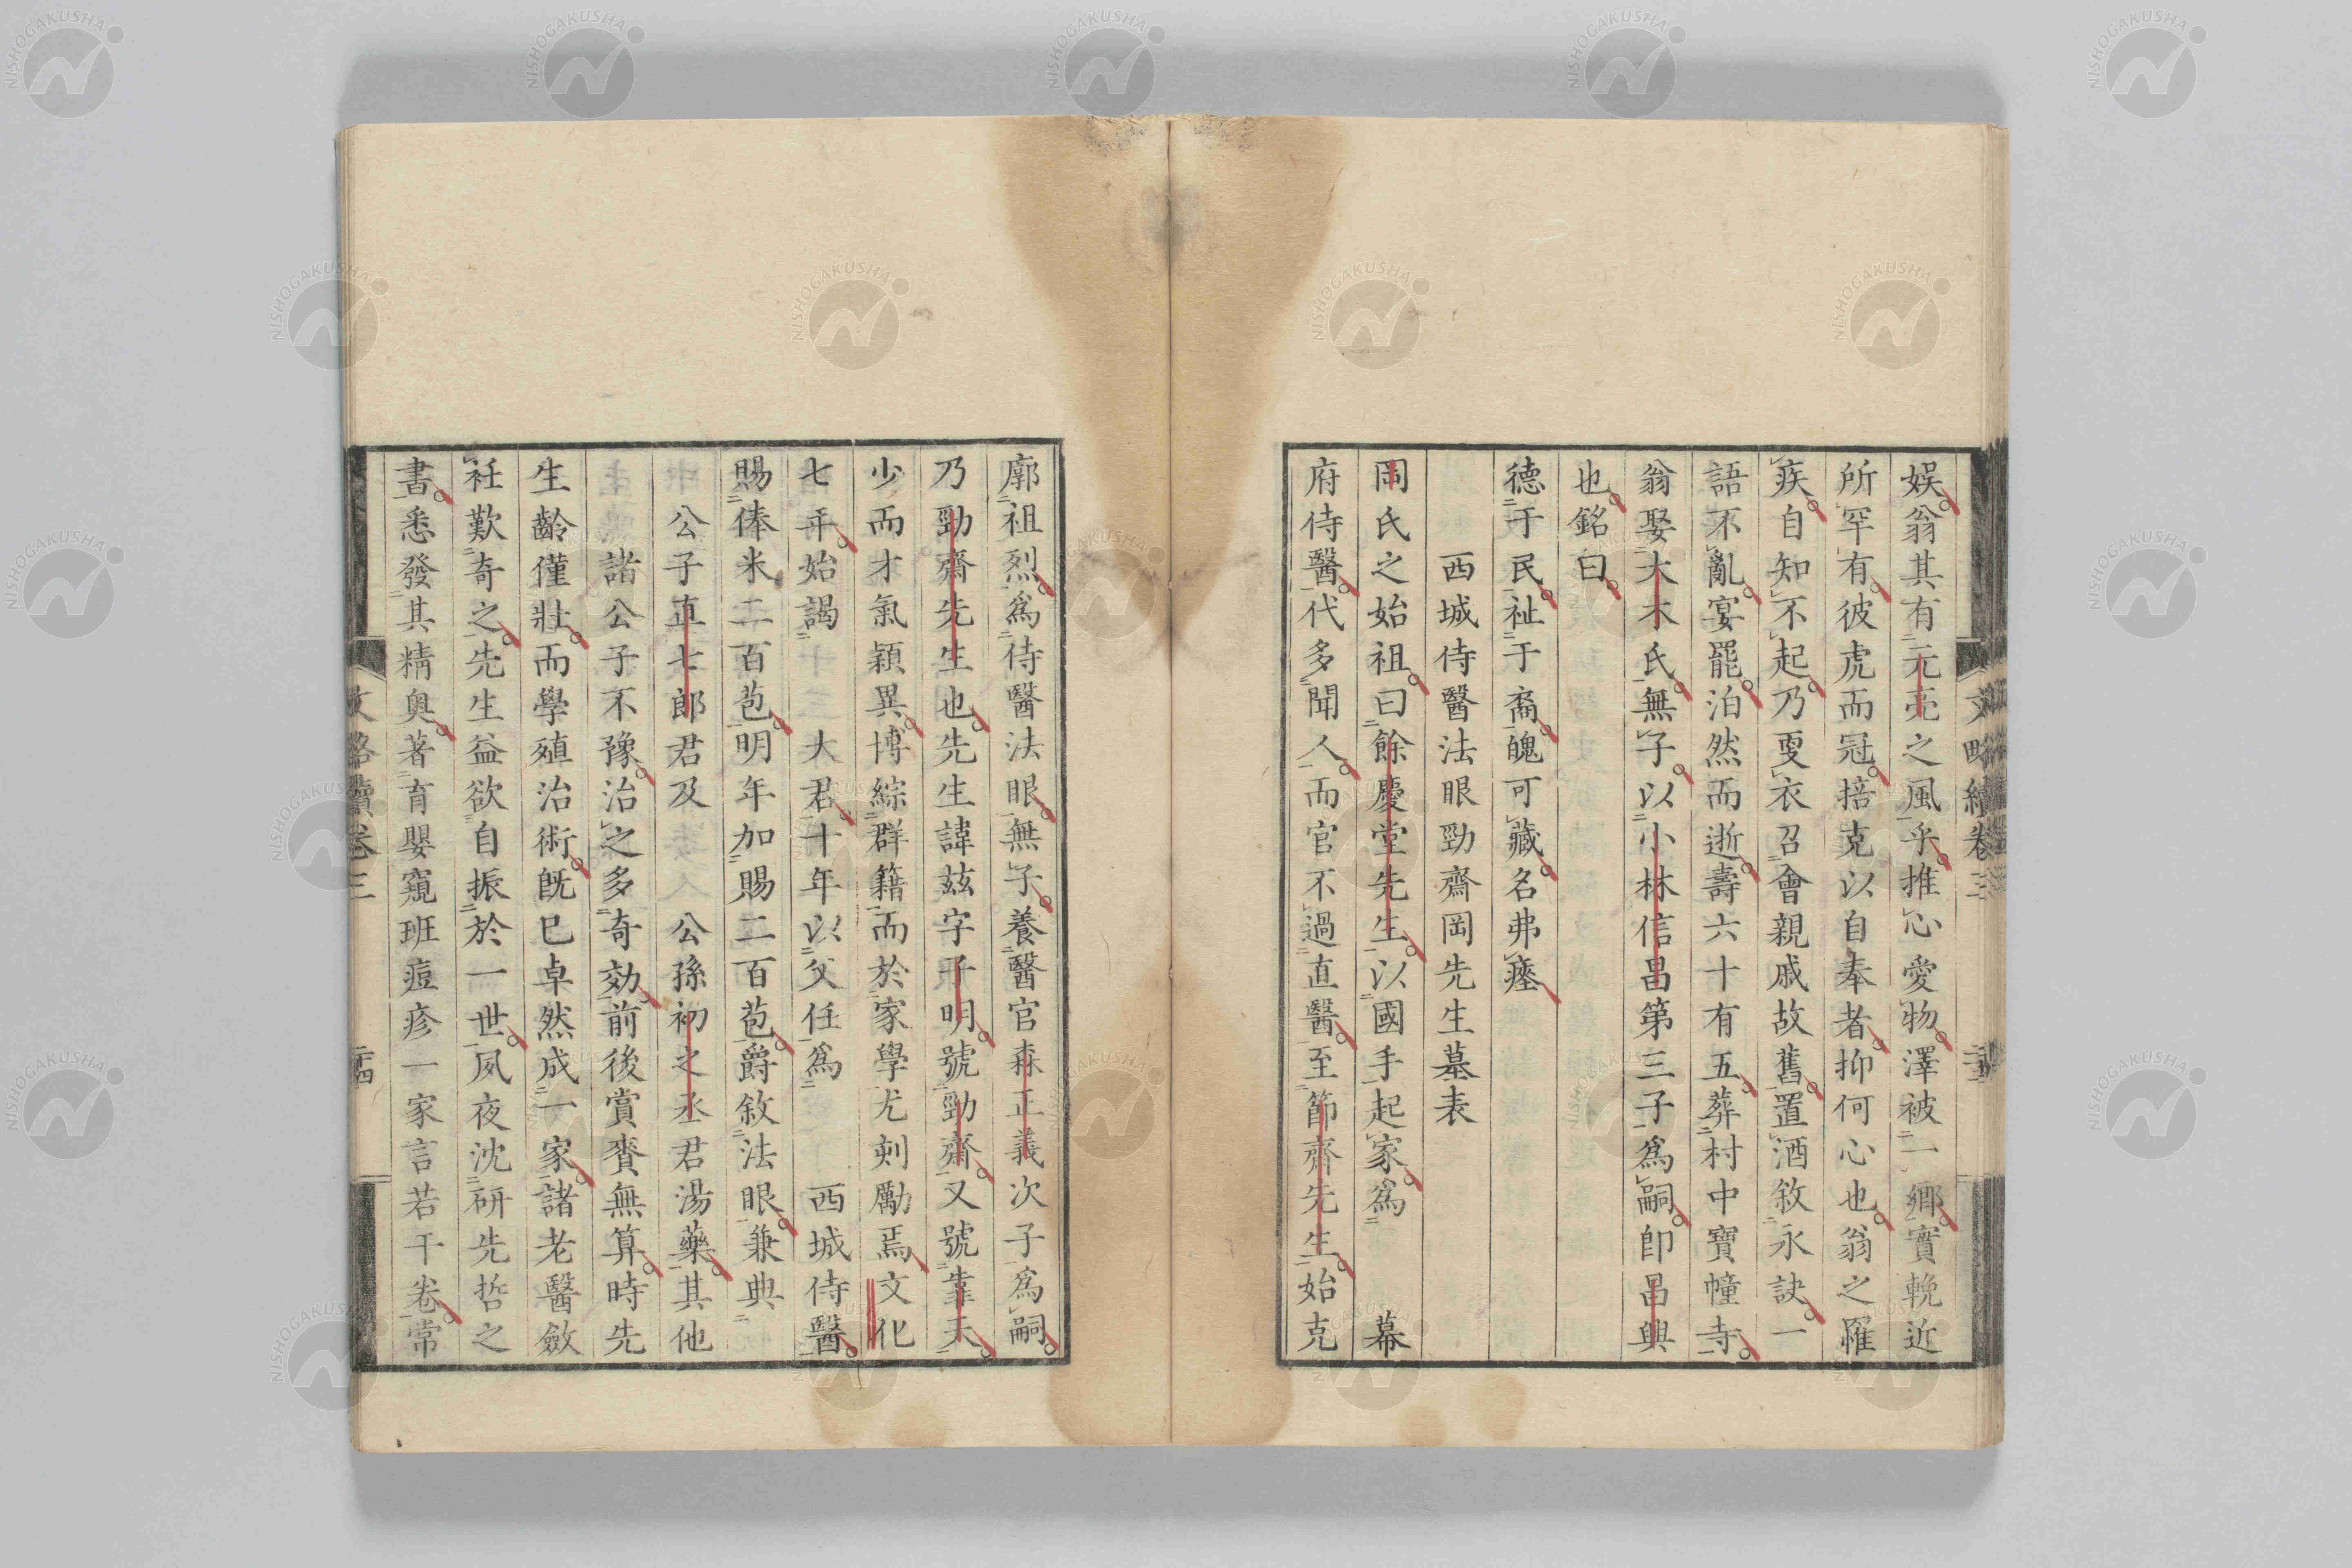 娯翁其有元亮之風乎推心愛物澤被一鄉實輓近
所罕有彼虎而冠掊克以自奉者抑何心也翁之罹
疾自知不起乃更衣召會親戚故舊置酒敘永訣一
語不亂宴罷泊然而逝壽六十有五葬村中寶幢寺
翁娶大木氏無子以小林信昌第三子爲嗣卽昌興
也銘曰
德于民祉于裔魄可藏名弗瘞
西城侍醫法眼勁齋岡先生墓表
岡氏之始祖曰餘慶堂先生以國手起家爲 幕
府侍醫代多聞人而官不過直醫至節齊先生始克
廓祖烈爲侍醫法眼無子養醫官森正義次子爲嗣
乃勁齋先生也先生諱玆字子明號勁齋又號靠天
少而才氣穎異博綜群籍而於家學尤刻勵焉文化
七年始謁 大君十年以父任爲 西城侍醫
賜俸米二百苞明年加賜二百苞爵敘法眼兼典
公子直七郎君及 公孫初之丞君湯藥其他
諸公子不豫治之多奇効前後賞賚無算時先
生齡僅壯而學殖治術旣已卓然成一家諸老醫斂
衽歎奇之先生益欲自振於一世夙夜沈研先哲之
書悉發其精奧著育嬰窺班痘疹一家言若干卷常
文略續卷三
文略續卷三
NISHOGAKUSHA